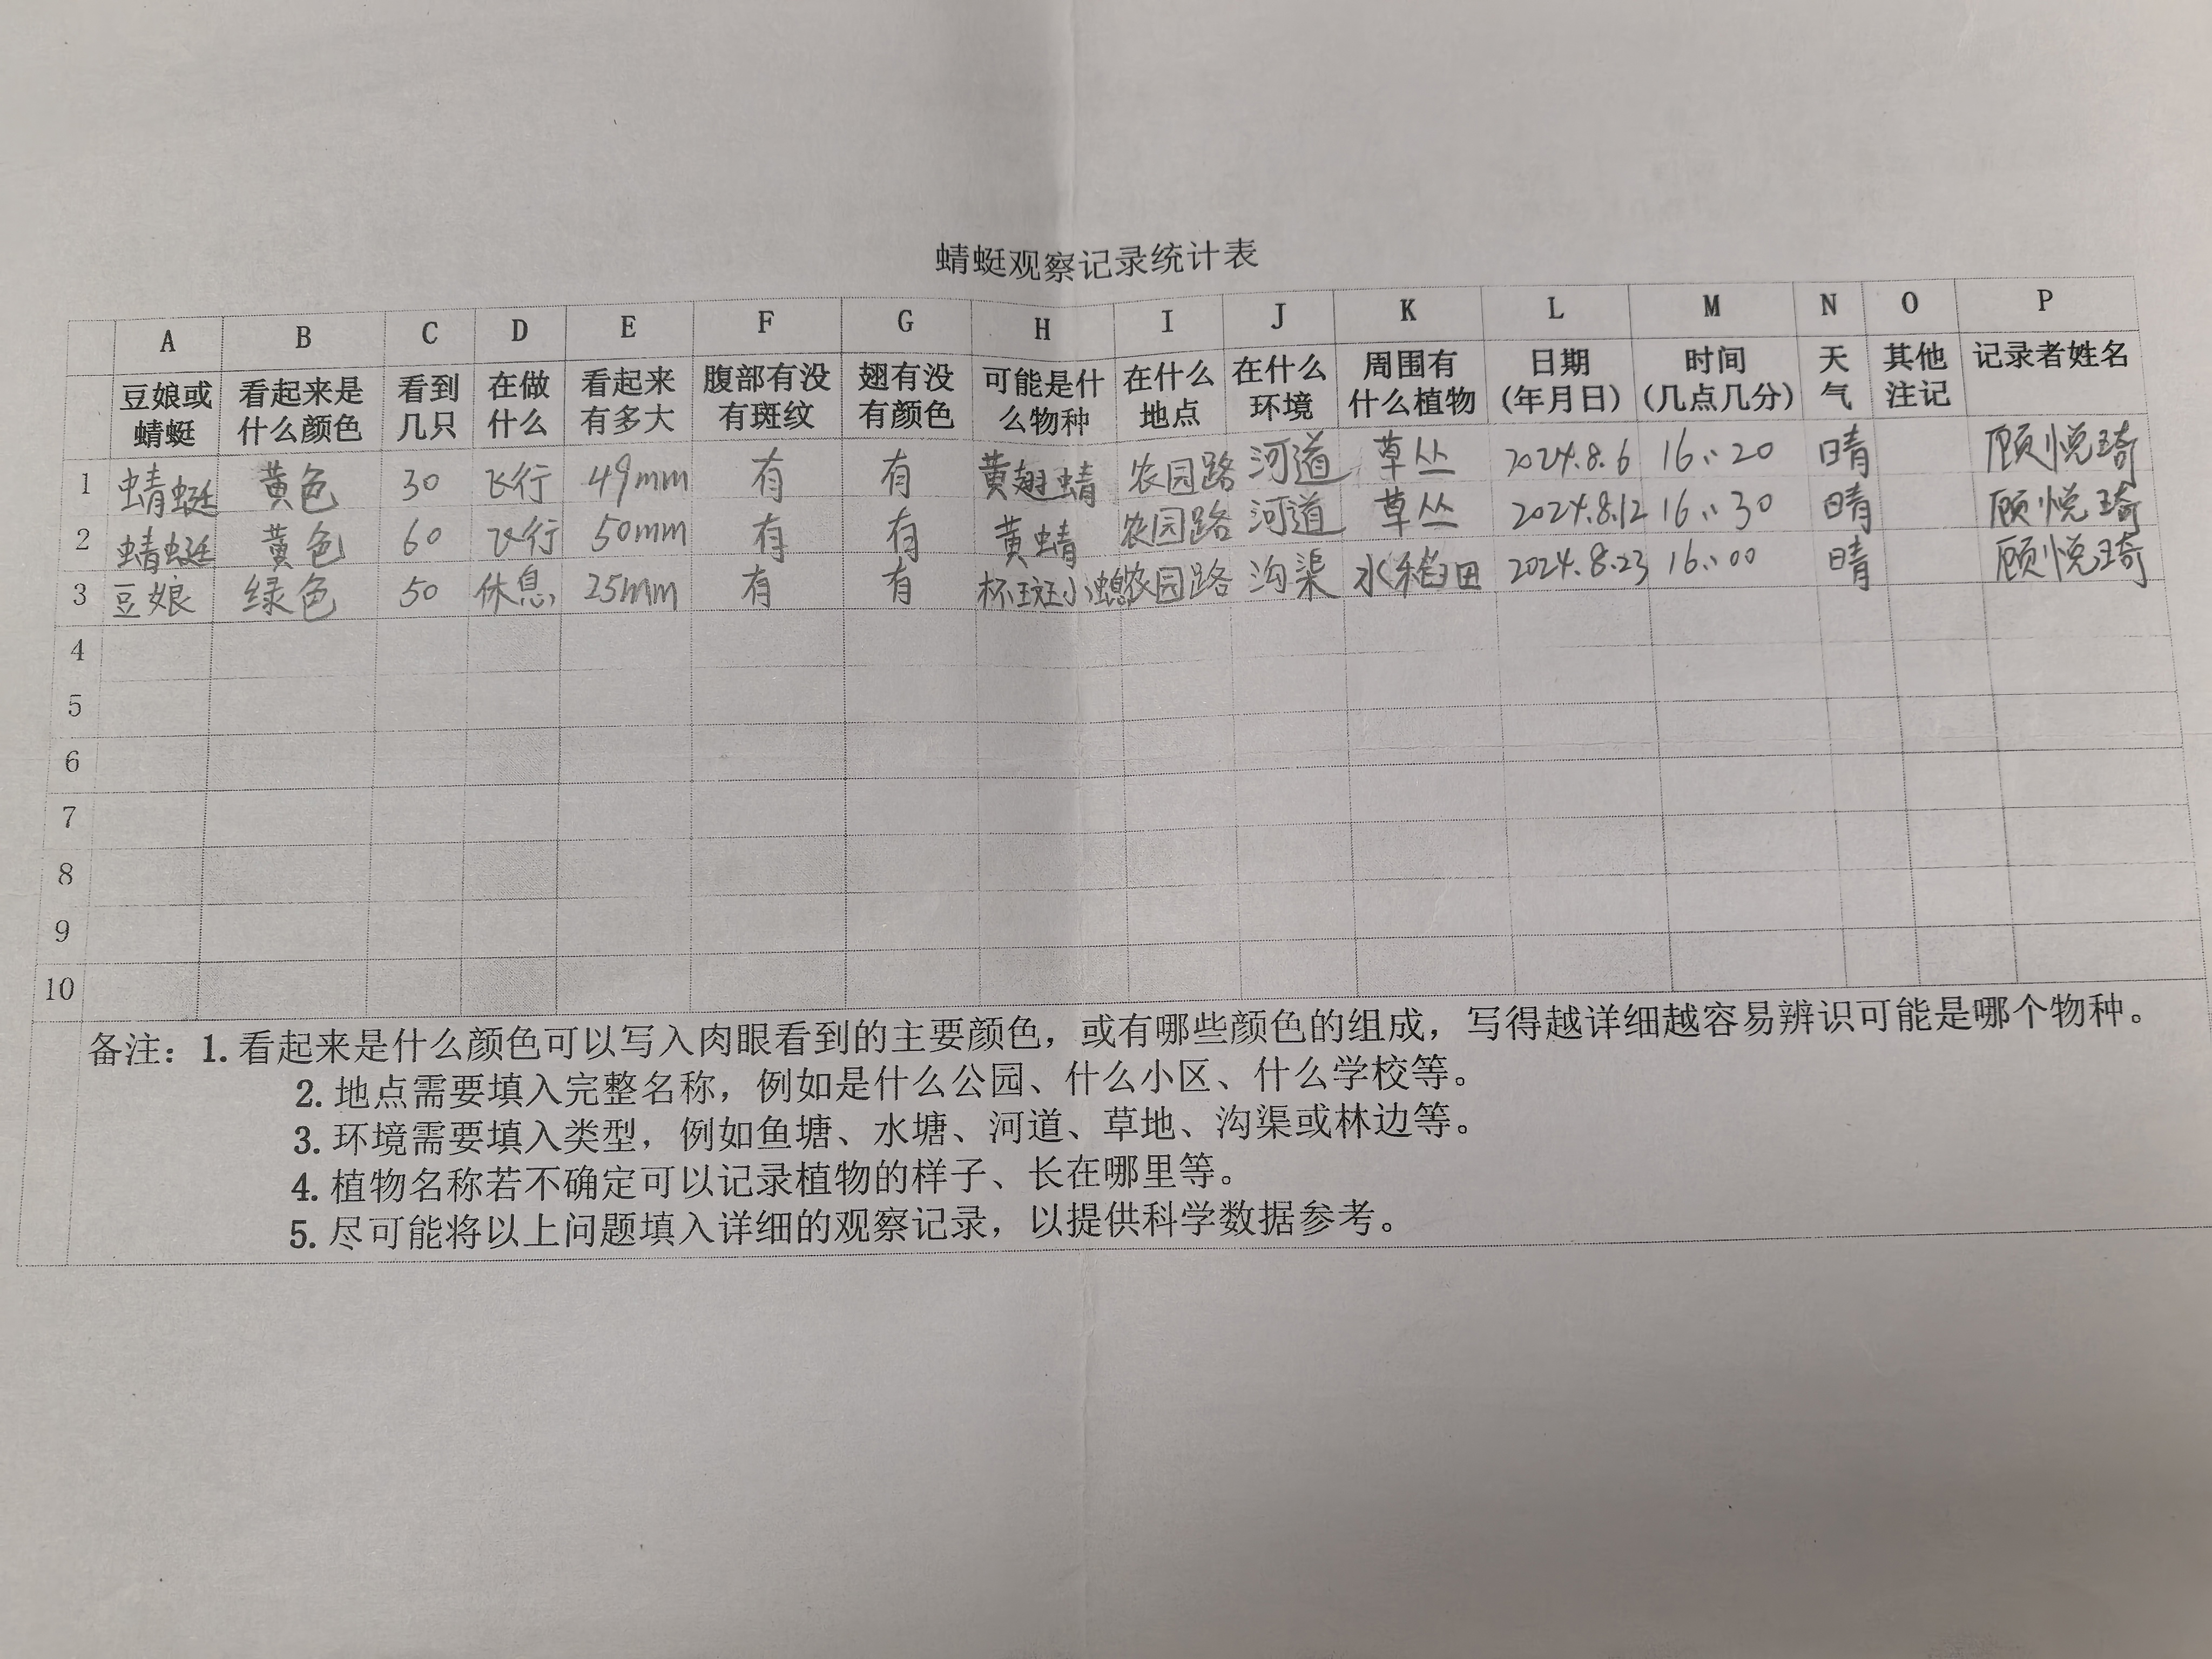 蜻蜓观察记录统计表
A B C D E F G H I J K L M N O P
豆娘或蜻蜓 看起来是什么颜色 看到几只 在做什么 看起来有多大 腹部有没有斑纹 翅有没有颜色 可能是什么物种 在什么地点 在什么环境 周围有什么植物 日期(年月日) 时间(几点几分) 天气 其他注记 记录者姓名
1 蜻蜓 黄色 30 飞行 49mm 有 有 黄翅蜻 农园路 河道 草丛 2024.8.6 16:20 晴 顾悦琦
2 蜻蜓 黄色 60 飞行 50mm 有 有 黄蜻 农园路 河道 草丛 2024.8.12 16:30 晴 顾悦琦
3 豆娘 绿色 50 休息 25mm 有 有 杯斑小蟌 农园路 沟渠 水稻田 2024.8.23 16:00 晴 顾悦琦
4
5
6
7
8
9
10
备注：1. 看起来是什么颜色可以写入肉眼看到的主要颜色，或有哪些颜色的组成，写得越详细越容易辨识可能是哪个物种。
2. 地点需要填入完整名称，例如是什么公园、什么小区、什么学校等。
3. 环境需要填入类型，例如鱼塘、水塘、河道、草地、沟渠或林边等。
4. 植物名称若不确定可以记录植物的样子、长在哪里等。
5. 尽可能将以上问题填入详细的观察记录，以提供科学数据参考。